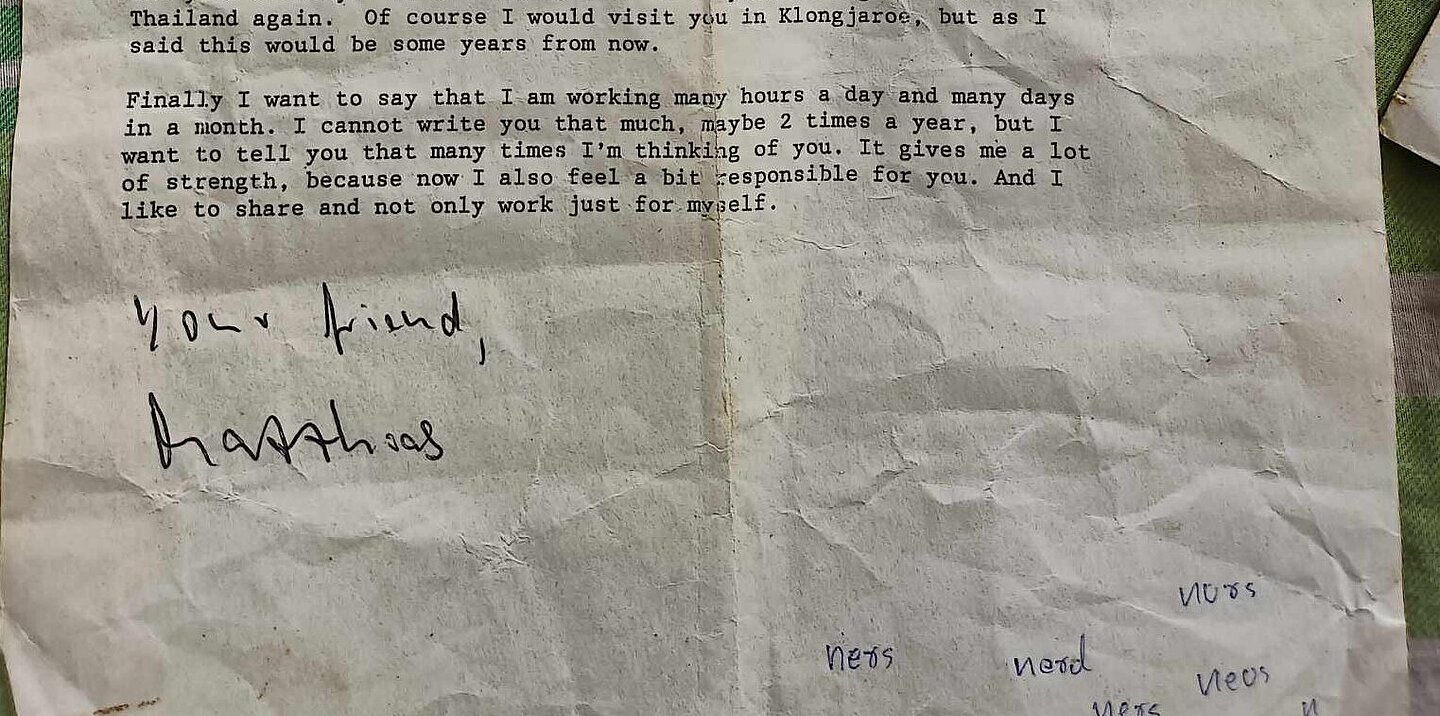 Thailand again.  Of course I would visit you in Klongjaroe, but as I
said this would be some years from now.
Finally I want to say that I am working many hours a day and many days
in a month. I cannot write you that much, maybe 2 times a year, but I
want to tell you that many times I'm thinking of you. It gives me a lot
of strength, because now I also feel a bit responsible for you. And I
like to share and not only work just for myself.
Your friend,
Matthias
nors
ners nerd
neos
ners